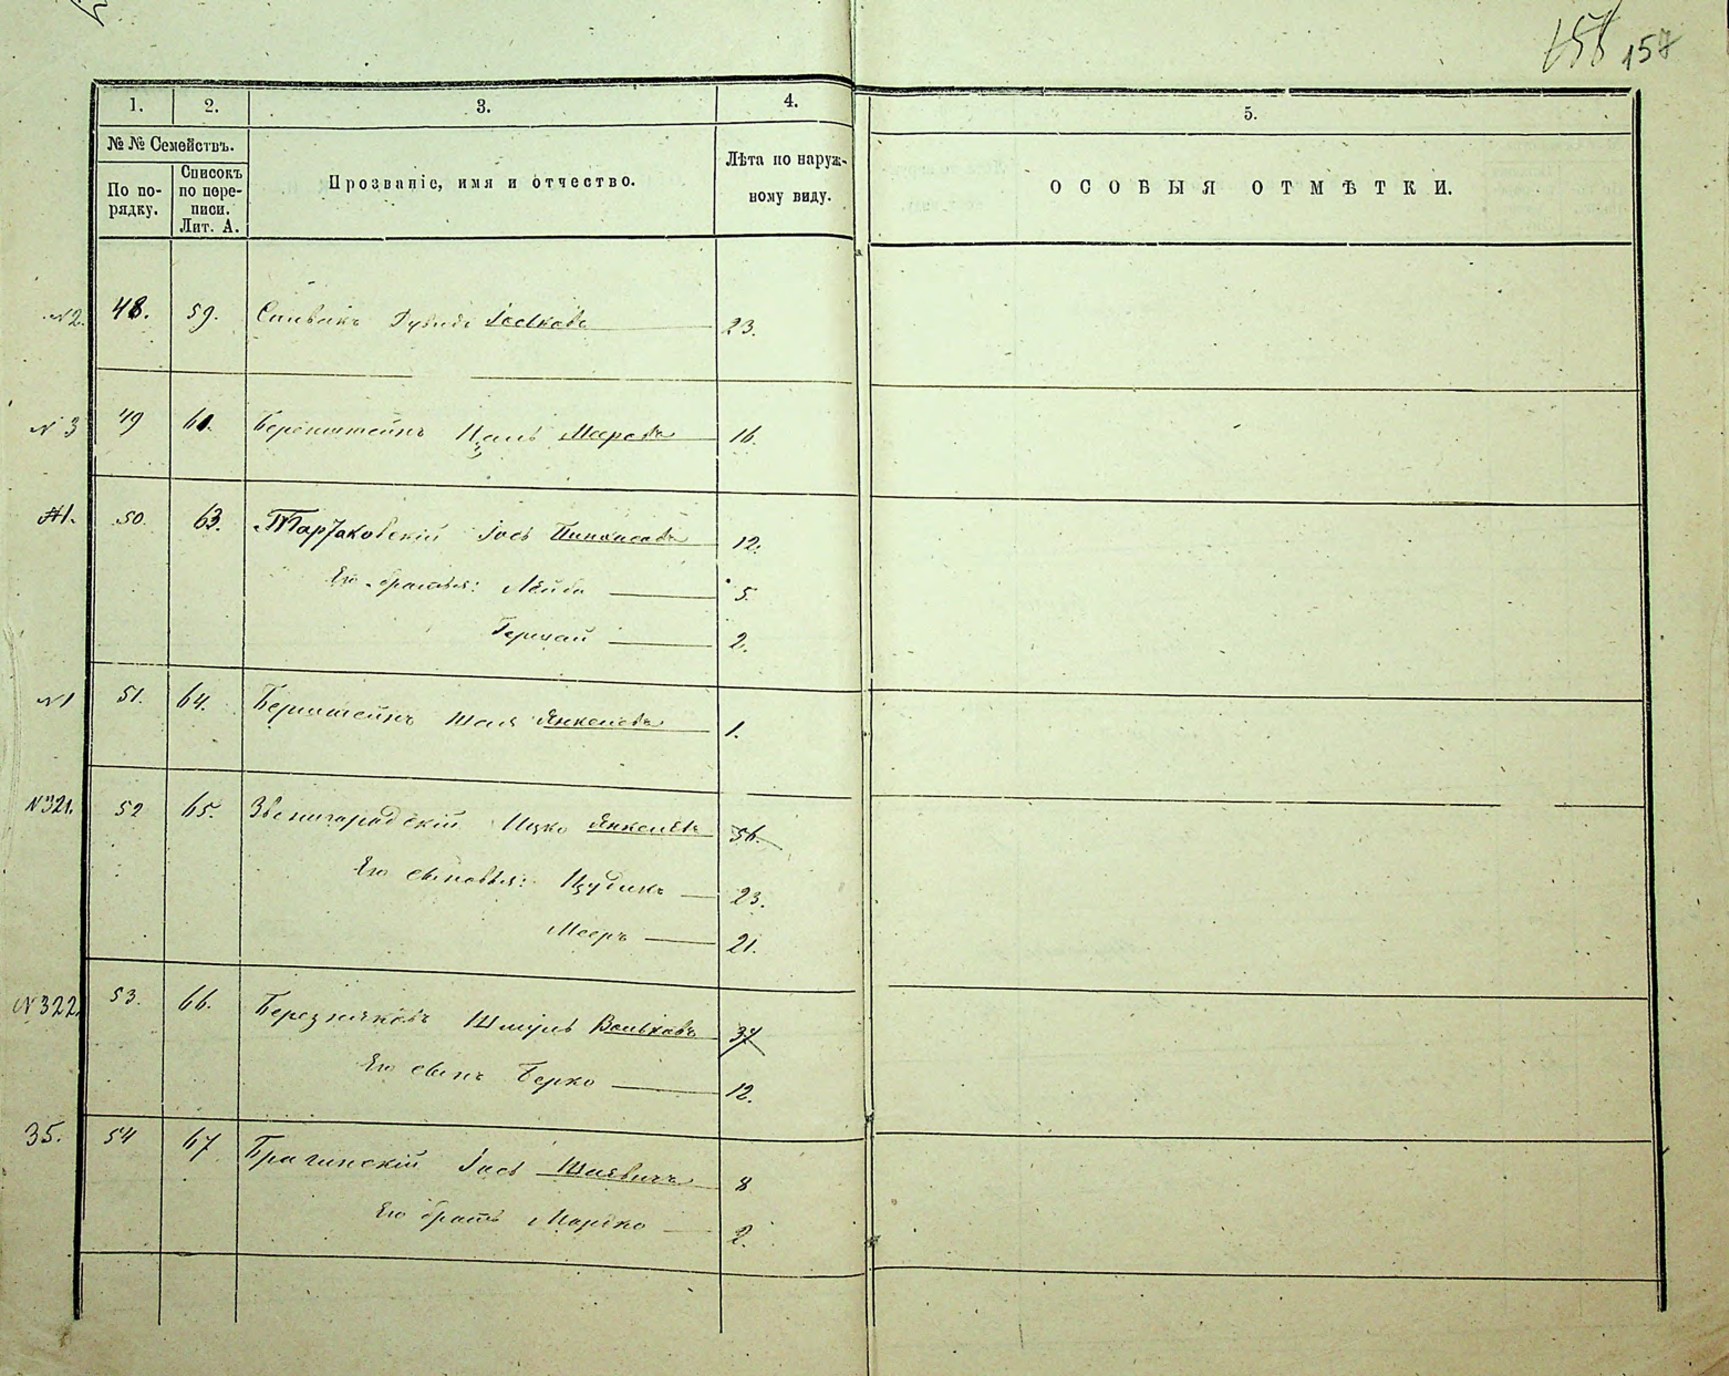 157
1.
2.
3.
4.
5.
№ № Семействъ.
По по-
рядку.
Списокъ
по пере-
писи.
Лит. А.
Прозваніе, имя и отчество.
Лѣта по наруж-
ному виду.
ОСОБЫЯ ОТМѢТКИ.
№2. 48. 59. Спивакъ Іосковъ 23.
№ 3 49 Беренштейнъ Мееровъ 16.
№1. 50. 63. Тартаковскій Іось Пинхасовъ 12.
Его братья: Лейба 5.
Гершай 2.
№1 51. 64. Бернштейнъ Шая Янкелевъ 1.
№321. 52 65. Звенигарадскій Ицко Янкелевъ 56.
Его сыновья: Иудика 23.
Мееръ 21.
№322. 53. 66. Березняковъ Шмуль Вольковъ 37
Его сынъ Берко 12.
35. 54 67 Брагинскій Іось Шаевичъ 8
Его братъ Марко 2.